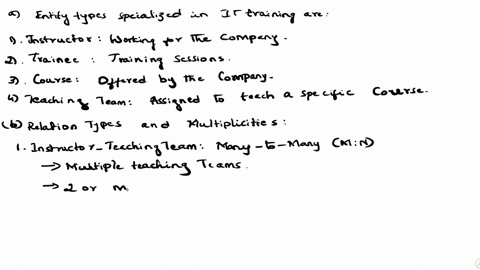 a) Entity types specialized in IT training are:
1). Instructor: Working for the Company.
2). Trainee: Training Sessions.
3). Course: Offered by the Company.
4) Teaching Team: Assigned to teach a specific Course.
(b) Relation Types and Multiplicities:
1. Instructor-Teaching Team: Many-to-Many (M:N)
→ Multiple teaching Teams.
→ 2 or m